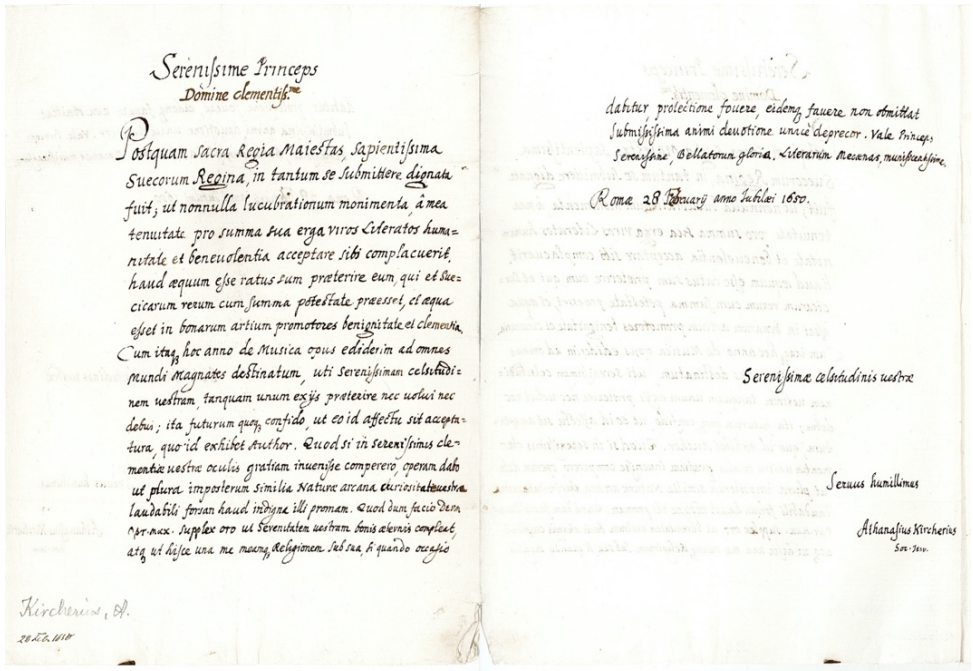 Serenissime Princeps
Domine clementiss.me
Postquam Sacra Regia Maiestas, Sapientissima
Suecorum Regina, in tantum se Submittere dignata
fuit; ut nonnulla lucubrationum monimenta, à mea
tenuitate pro summa sua erga viros Literatos huma=
nitate et beneuolentia acceptare sibi complacuerit
haud æquum esse ratus sum præterire eum, qui et Sue=
cicarum rerum cum summa potestate præesset, et æqua
esset in bonarum artium promotores benignitate et clementia.
Cum itaq hoc anno de Musica opus ediderim ad omnes
Mundi Magnates destinatum, uti Serenissimam celsitudi=
nem vestram, tanquam unum ex ijs præterire nec uolui nec
debui; ita futurum quoq confido, ut eo id affectu sit accepta=
tura, quo id exhibet Author. Quod si in serenissimis cle=
mentiæ vestræ oculis gratiam inuenisse comperero, operam dabo
ut plura imposterum similia Naturæ arcana curiositate vestra
laudabili forsan haud indigna illi promam. Quod dum facio Deum
Opt. Max. Supplex oro ut Serenitatem vestram bonis æternis compleat,
atq ut hisce una me meamq Religionem sub sua, si quando occasio
dabitur, protectione fouere, eidemq fauere non omittat
Submississima animi deuotione unice deprecor. Vale Princeps
Serenissime, Bellatorum gloria, Literarum Mecænas, munificentissime.
Romæ 28 Februarij anno Iubilæi 1650.
Serenissimæ celsitudinis uestræ
Seruus humillimus
Athanasius Kircherius
Soc. Iesu.
Kircherius, A.